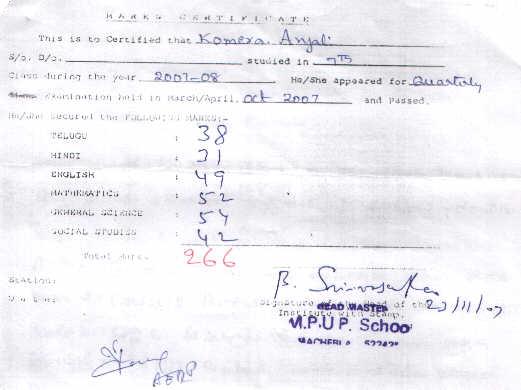 MARKS CERTIFICATE
This is to Certified that Komera. Anjali
S/o. D/o. studied in 7th
Class during the year 2007-08 He/She appeared for Quarterly
Examination held in March/April. Oct 2007 and Passed.
He/She secured the FOLLOWING MARKS:-
TELUGU : 38
HINDI : 31
ENGLISH : 49
MATHEMATICS : 52
GENERAL SCIENCE : 54
SOCIAL STUDIES : 42
Total Marks. 266
Station:
Date: Signature of the Head of the 23/11/07
Institute with Stamp.
HEAD MASTER
M.P.U.P. School
MACHERLA